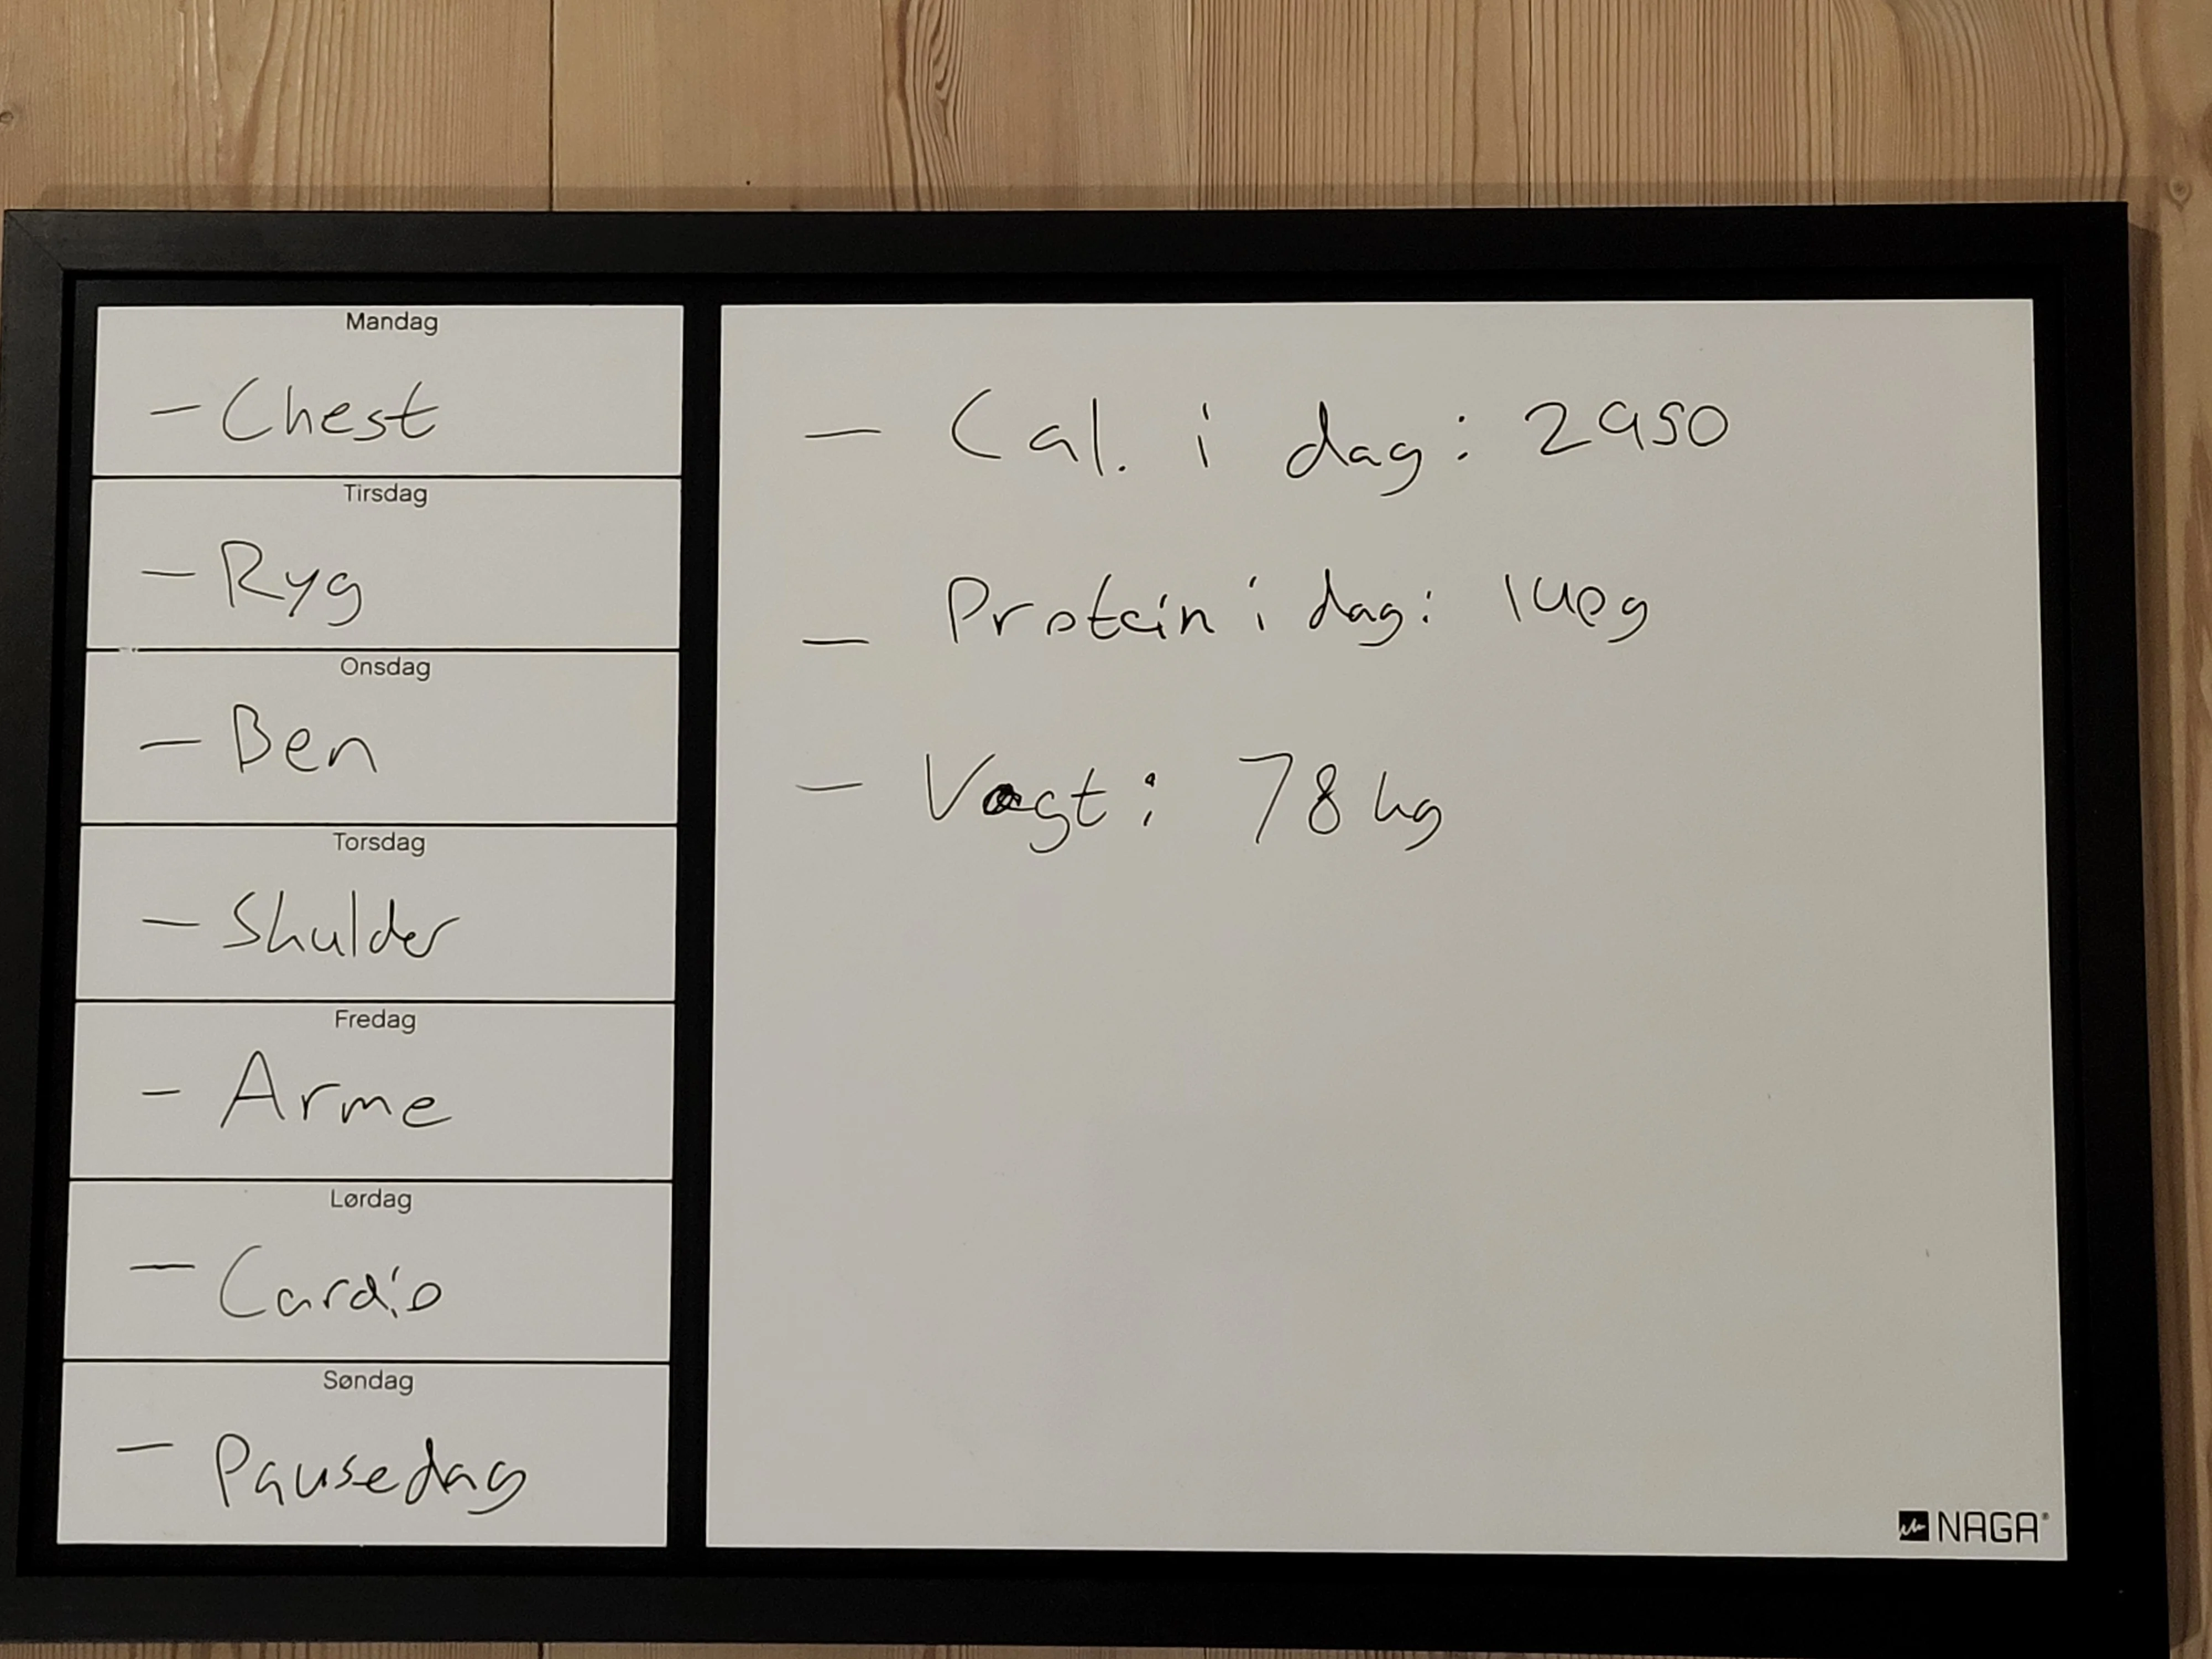 Mandag
- Chest
Tirsdag
- Ryg
Onsdag
- Ben
Torsdag
- Skulder
Fredag
- Arme
Lørdag
- Cardio
Søndag
- Pausedag
- Cal. i dag: 2950
- Protein i dag: 140g
- Vægt: 78 kg
NAGA®